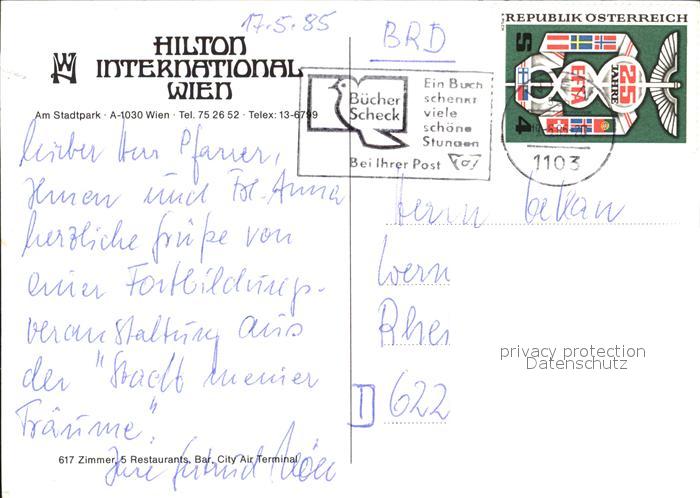 17.5.85
BRD
HILTON
INTERNATIONAL
WIEN
Am Stadtpark · A-1030 Wien · Tel. 75 26 52 · Telex: 13-6799
REPUBLIK ÖSTERREICH
S 4
25
JAHRE
EFTA
Bücher
Scheck
Ein Buch
schenkt
viele
schöne
Stunden
Bei Ihrer Post
1103
Lieber Herr Pfarrer,
Ihnen und Frl. Anna
herzliche Grüße von
einer Fortbildungs-
veranstaltung aus
der "Stadt meiner
Träume".
Ihre Gertrud
617 Zimmer, 5 Restaurants, Bar, City Air Terminal
Herrn Dekan
Wern
Rhei
D 622
privacy protection
Datenschutz